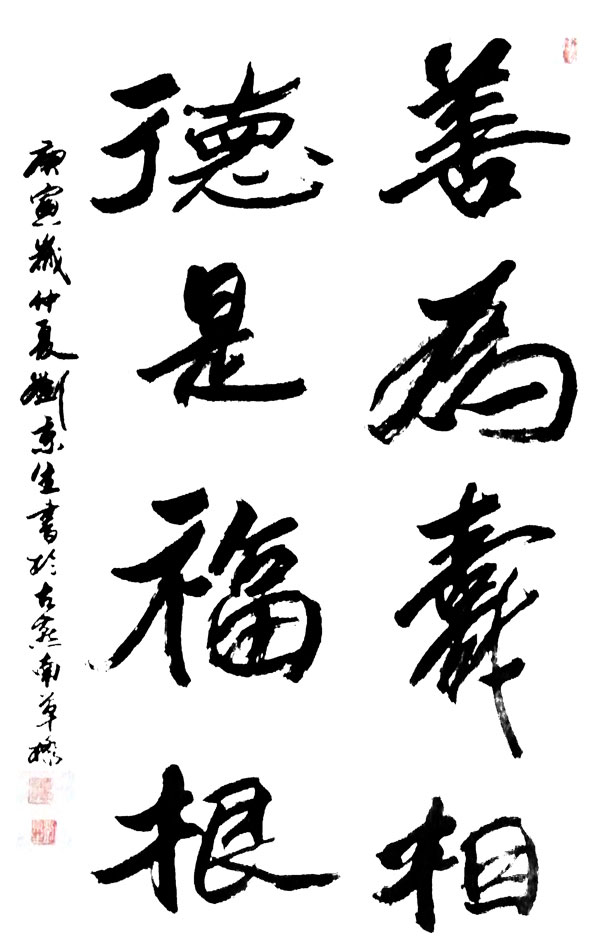 善为寿相
德是福根
庚寅歲仲夏劉京生書於古燕南草橋